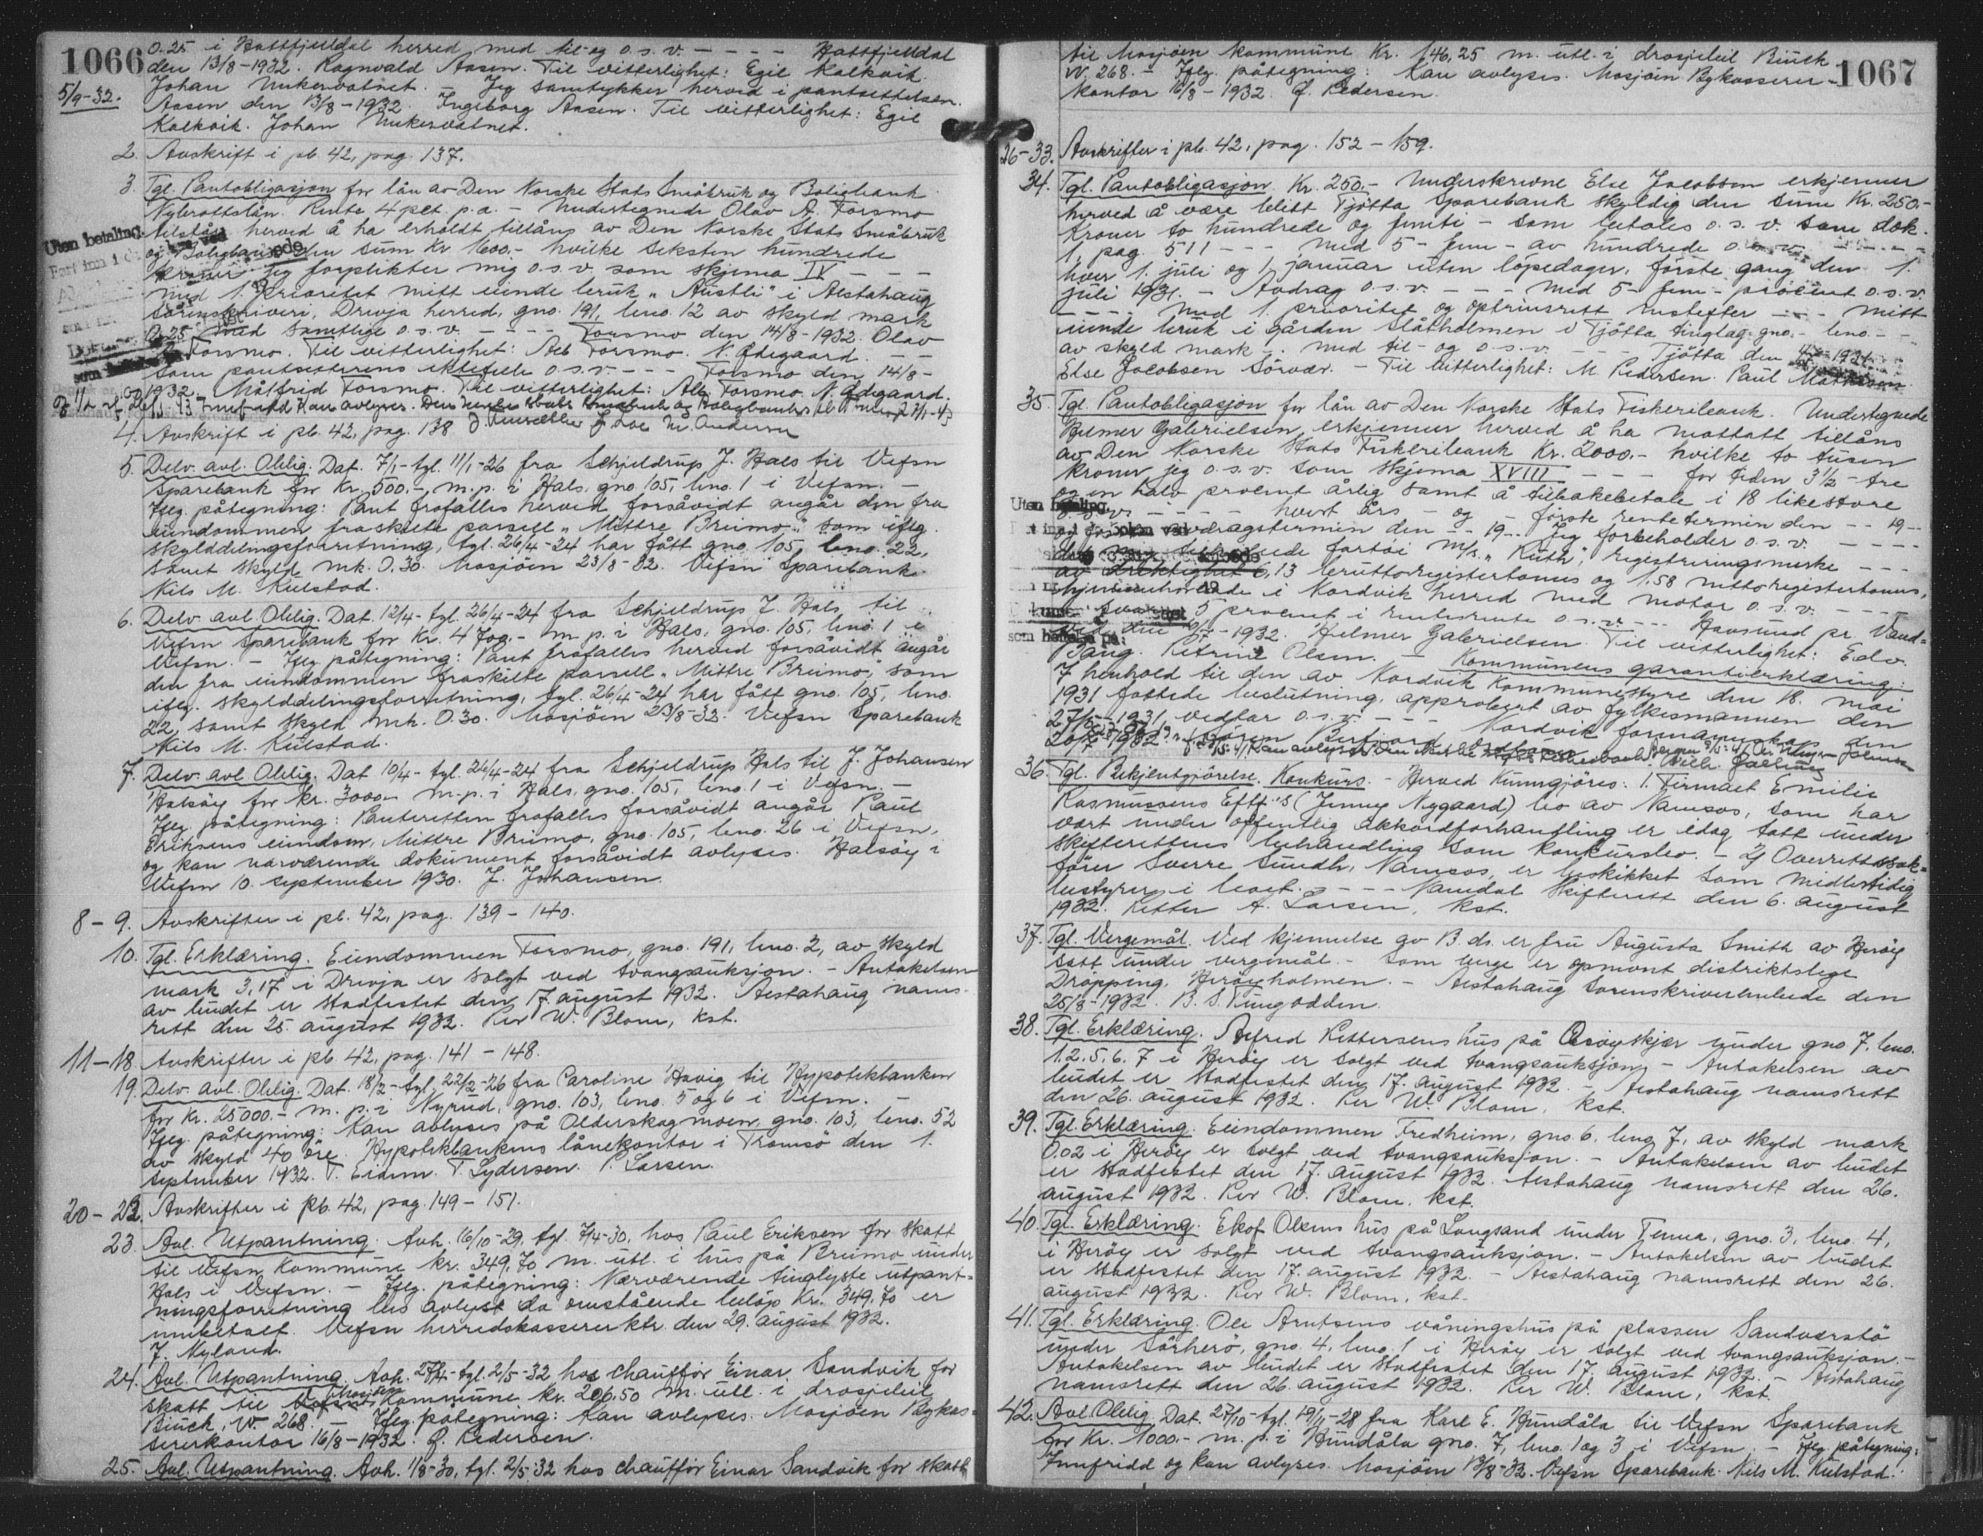 1066
5/9-32.
0.25 i Hattfjelldal herred med til og o.s.v. - - - - Hattfjelldal
den 13/8-1932. Ragnvald Aasen. Til vitterlighet: Egil Kalkvik.
Johan Unkervatnet. Jeg samtykker herved i pantsettelsen.
Aasen den 13/8-1932. Ingeborg Aasen. Til vitterlighet: Egil
Kalkvik. Johan Unkervatnet.
2. Avskrift i pb. 42, pag. 137.
3. Tgl. Pantobligasjon for lån av Den Norske Stats Småbruk og Boligbank
Nybrottslån. Rente 4 pct. p.a. - Undertegnede Olav A. Forsmo
tilstår herved å ha erholdt tillåns av Den Norske Stats Småbruk
og Boligbank den sum Kr. 1600.- hvilke seksten hundrede
kroner jeg forplikter mig o.s.v. som skjema IV - - -
med 1. prioritet mitt eiende bruk "Austli" i Alstahaug
sorenskriveri, Drevja herred, gno. 191, bno. 12 av skyld mark
0.25 med samtlige o.s.v. - - - - Forsmo den 14/8-1932. Olav
A. Forsmo. Til vitterlighet: Alb. Forsmo. N. Ødegaard. - -
Som pantsetterens ektefelle o.s.v. - - - Forsmo den 14/8-
1932. Målfrid Forsmo. Til vitterlighet: Alb. Forsmo N. Ødegaard.
Innfridd Kan avlyses. Den Norske Stats Småbruk og Boligbank
4. Avskrift i pb. 42, pag. 138
5. Delv. avl. Oblig. Dat. 7/1-tgl. 11/1-26 fra Schjeldrup J. Hals til Vefsn
Sparebank for Kr. 500.- m.p. i Hals, gno. 105, bno. 1 i Vefsn. -
Iflg. påtegning: Pant frafalles herved forsåvidt angår den fra
eiendommen fraskilte parsell "Mittre Breimo" som iflg.
skylddelingsforretning, tgl. 26/4-24 har fått gno. 105, bno. 22,
samt skyld mk. 0.30. Mosjøen 23/8-32. Vefsn Sparebank.
Nils M. Kulstad.
6. Delv. avl. Oblig. Dat. 12/4-tgl. 26/4-24 fra Schjeldrup J. Hals til
Vefsn Sparebank for Kr. 4700.- m.p. i Hals, gno. 105, bno. 1 i
Vefsn. - Iflg. påtegning: Pant frafalles herved forsåvidt angår
den fra eiendommen fraskilte parsell "Mittre Breimo", som
iflg. skylddelingsforretning, tgl. 26/4-24 har fått gno. 105, bno.
22 samt skyld mk. 0.30. Mosjøen 23/8-32. Vefsn Sparebank
Nils M. Kulstad.
7. Delv. avl. Oblig. Dat. 10/4-tgl. 26/4-24 fra Schjeldrup Hals til J. Johansen
Halsøy for kr. 3000.- m.p. i Hals, gno. 105, bno. 1 i Vefsn. -
Iflg. påtegning: Panteretten frafalles forsåvidt angår Paul
Eriksens eiendom, Mittre Breimo, gno. 105, bno. 26 i Vefsn,
og kan nærværende dokument forsåvidt avlyses. Halsøy i
Vefsn 10. september 1930. J. Johansen.
8-9. Avskrifter i pb. 42, pag. 139-140.
10. Tgl. Erklæring. Eiendommen Forsmo, gno. 191, bno. 2, av skyld
mark 3,17 i Drevja er solgt ved tvangsauksjon. - Antakelsen
av budet er stadfestet den 17. august 1932. Alstahaug nams-
rett den 25. august 1932. Per W. Blom, kst.
11-18. Avskrifter i pb. 42, pag. 141-148.
19. Delv. avl. Oblig. Dat. 18/2-tgl. 22/2-26 fra Caroline Havig til Hypotekbanken
for Kr. 25000.- m.p. i Nyrud, gno. 103, bno. 5 og 6 i Vefsn. -
Iflg. påtegning: Kan avlyses på Olderskogmoen, gno. 103, bno. 52
av skyld 40 øre. Hypotekbankens lånekontor i Tromsø den 1.
september 1932. T. Eidem. T. Sydersen. P. Larsen.
20-22. Avskrifter i pb. 42, pag. 149-151.
23. Avl. Utpantning. Avh. 16/10-29, tgl. 7/4-30, hos Paul Eriksen for skatt
til Vefsn kommune kr. 349.70 m. utl. i hus på Breimo under
Hals i Vefsn. - Iflg. påtegning: Nærværende tinglyste utpant-
ningsforretning bes avlyst da omstående beløp Kr. 349.70 er
innbetalt. Vefsn herredskassererktr. den 29. august 1932.
J. Nyland.
24. Avl. Utpantning. Avh. 27/4-tgl. 2/5-32 hos chauffør Einar Sandvik for
skatt til Mosjøen kommune kr. 206.50 m. utl. i drosjebil
Buick, W. 268. - Iflg. påtegning: Kan avlyses. Mosjøen Bykas-
sererkontor 16/8-1932. Q. Pedersen.
25. Avl. Utpantning. Avh. 1/8-30, tgl. 2/5-32 hos chauffør Einar Sandvik for skatt
1067
til Mosjøen kommune Kr. 146.25 m. utl. i drosjebil Buick
W. 268. - Iflg. påtegning: Kan avlyses. Mosjøen Bykasserer-
kontor 16/8-1932. Q. Pedersen.
26-33. Avskrifter i pb. 42, pag. 152-159.
34. Tgl. Pantobligasjon. Kr. 250.- Underskrevne Else Jacobsen erkjenner
herved å være blitt Tjøtta Sparebank skyldig den sum Kr. 250.-
Kroner to hundrede og femti - som betales o.s.v. som dok.
1, pag. 511 - - - med 5 - fem - av hundrede o.s.v. - - - -
hver 1. juli og 1. januar uten løpedager, første gang den 1.
juli 1931. - Avdrag o.s.v. - - - - med 5 - fem - procent o.s.v.
- - - - med 1. prioritet og oprinsrett nestefter - - - mitt
eiende bruk i gården Slåtholmen i Tjøtta tinglag, gno. - bno. -
av skyld mark - - med til- og o.s.v. - - - Tjøtta den 1931.
Else Jacobsen Sørvær. - Til vitterlighet: M. Pedersen. Paul Mathisen
35. Tgl. Pantobligasjon for lån av Den Norske Stats Fiskeribank. Undertegnede
Helmer Gabrielsen, erkjenner herved å ha mottatt tillåns
av Den Norske Stats Fiskeribank Kr. 2000.- hvilke to tusen
kroner jeg o.s.v. som skjema XVIII - - - for tiden 3 1/2 - tre
og en halv procent årlig samt å tilbakebetale i 18 likestore
- - - - hvert års - og første rentetermin den - - 19 -
og første avdragstermin den - - 19 - Jeg forbeholder o.s.v. - - - -
tilhørende fartøi M/k. "Ruth", registreringsmerke - - -
av drektighet 6,13 bruttoregistertonns og 1.58 nettoregistertonns,
hjemmehørende i Nordvik herred med motor o.s.v. - - -
5 procent i rentesrente o.s.v. - - - Havsund pr. Vand-
1932. Helmer Gabrielsen Til vitterlighet: Edv.
Bang. Petrine Olsen. - Kommunens garantierklæring:
I henhold til den av Nordvik Kommunestyre den 18. mai
1931 fattede beslutning, approbert av fylkesmannen den
27/5-1931, vedtar o.s.v. - - - Nordvik formannskap den
20/7-1932.
36. Tgl. Bekjentgjørelse. Konkurs. - Herved kunngjøres: 1. Firmaet Emilie
Rasmussens Eftf.'s (Jenny Nygaard) bo av Namsos, som har
vært under offentlig akkordforhandling er idag tatt under
skifterettens behandling som konkursbo. - 2) Overrettssak-
fører Sverre Sundli, Namsos, er beskikket som midlertidig
bestyrer i boet. - - - - Namdal Skifterett den 6. august
1932. Petter A. Larsen, kst.
37. Tgl. Vergemål. Ved kjennelse av B. ds. er fru Augusta Smith av Herøy
satt under vergemål. - Som verge er opnevnt distriktslege
Drøpping, Herøyholmen. - Alstahaug sorenskriverembede den
25/8-1932. B. S. Tungodden.
38. Tgl. Erklæring. Alfred Pettersens hus på Oksøyskjær under gno. 7, bno.
1.2.5.6.7 i Herøy er solgt ved tvangsauksjon. - Antakelsen av
budet er stadfestet den 17. august 1932. - Alstahaug namsrett
den 26. august 1932. Per W. Blom, kst.
39. Tgl. Erklæring. Eiendommen Fredheim, gno. 6, bno. 7, av skyld mark
0.02 i Herøy er solgt ved tvangsauksjon. - Antakelsen av budet
er stadfestet den 17. august 1932. Alstahaug namsrett den 26.
august 1932. Per W. Blom, kst.
40. Tgl. Erklæring. Ekof Olsens hus på Langsand under Tenna, gno. 3, bno. 4,
i Herøy er solgt ved tvangsauksjon. - Antakelsen av budet
er stadfestet den 17. august 1932. - Alstahaug namsrett den 26.
august 1932. Per W. Blom, kst.
41. Tgl. Erklæring. Ole Arntsens våningshus på plassen Sandværstø
under Sørherø, gno. 4, bno. 1 i Herøy er solgt ved tvangsauksjon. -
Antakelsen av budet er stadfestet den 17. august 1932. - Alstahaug
namsrett den 26. august 1932. Per W. Blom, kst.
42. Avl. Oblig. Dat. 27/10-tgl. 19/11-28 fra Karl E. Hundåla til Vefsn Sparebank
for Kr. 1000.- m.p. i Hundåla gno. 7, bno. 1 og 3 i Vefsn. - Iflg. påtegning:
Innfridd og kan avlyses. Mosjøen 13/8-32. Vefsn Sparebank. Nils M. Kulstad.